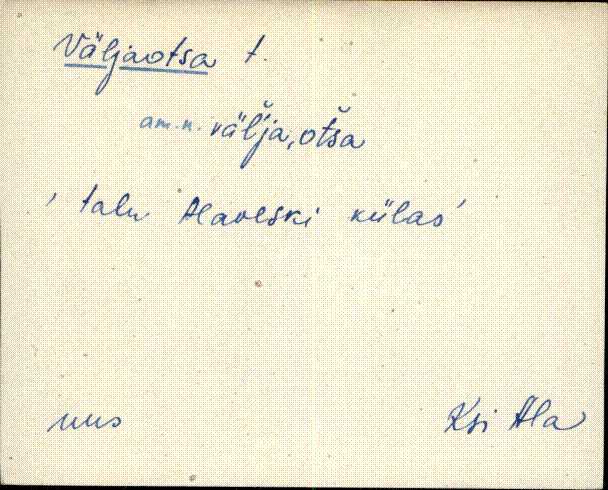 Väljaotsa t.
am.n. väl̆ja,otša
' talu Alaveski külas '
uus
Ksi Ala